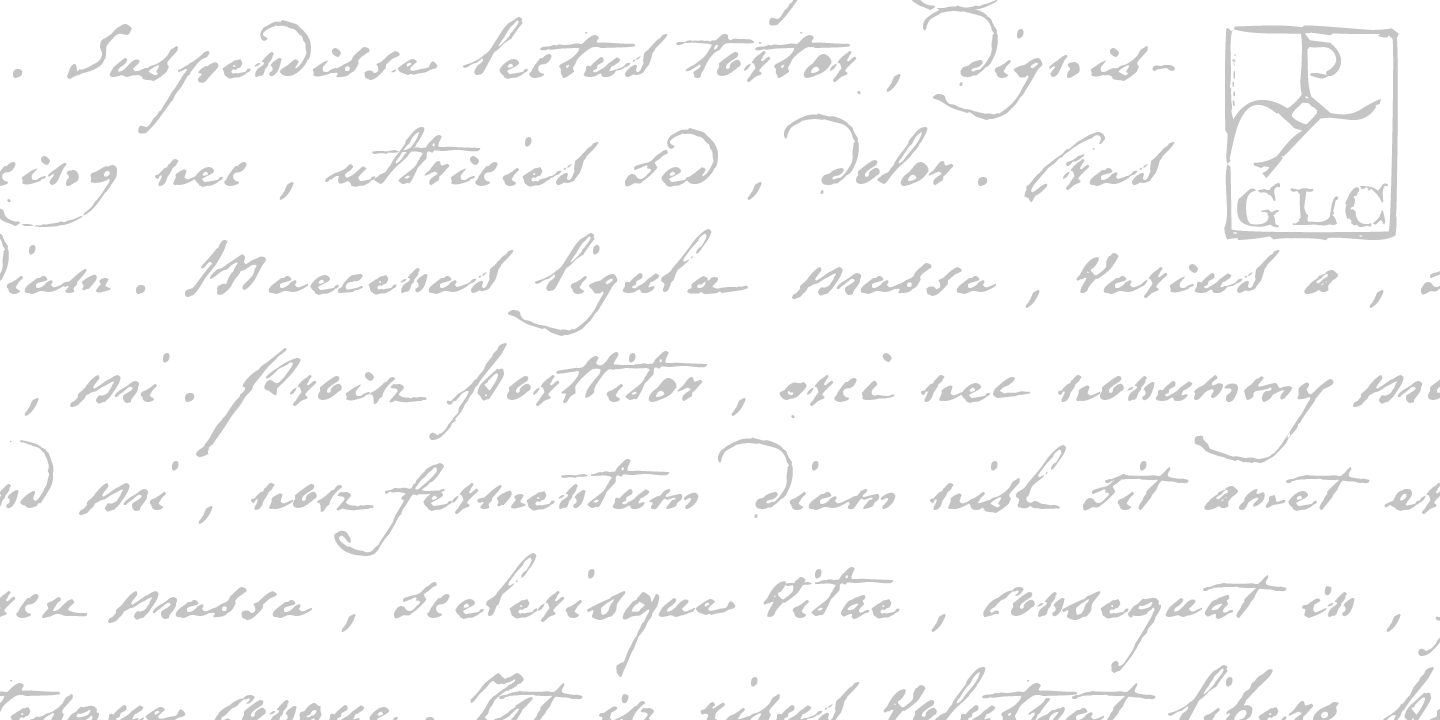 . Suspendisse lectus tortor, dignis-
cing nec, ultricies sed, dolor. Cras
diam. Maecenas ligula massa, varius a,
, mi. Proin porttitor, orci nec nonummy
mi, non fermentum diam nisl sit amet
arcu massa, scelerisque vitae, consequat in,
congue. Ut in risus volutpat libero
P
GLC